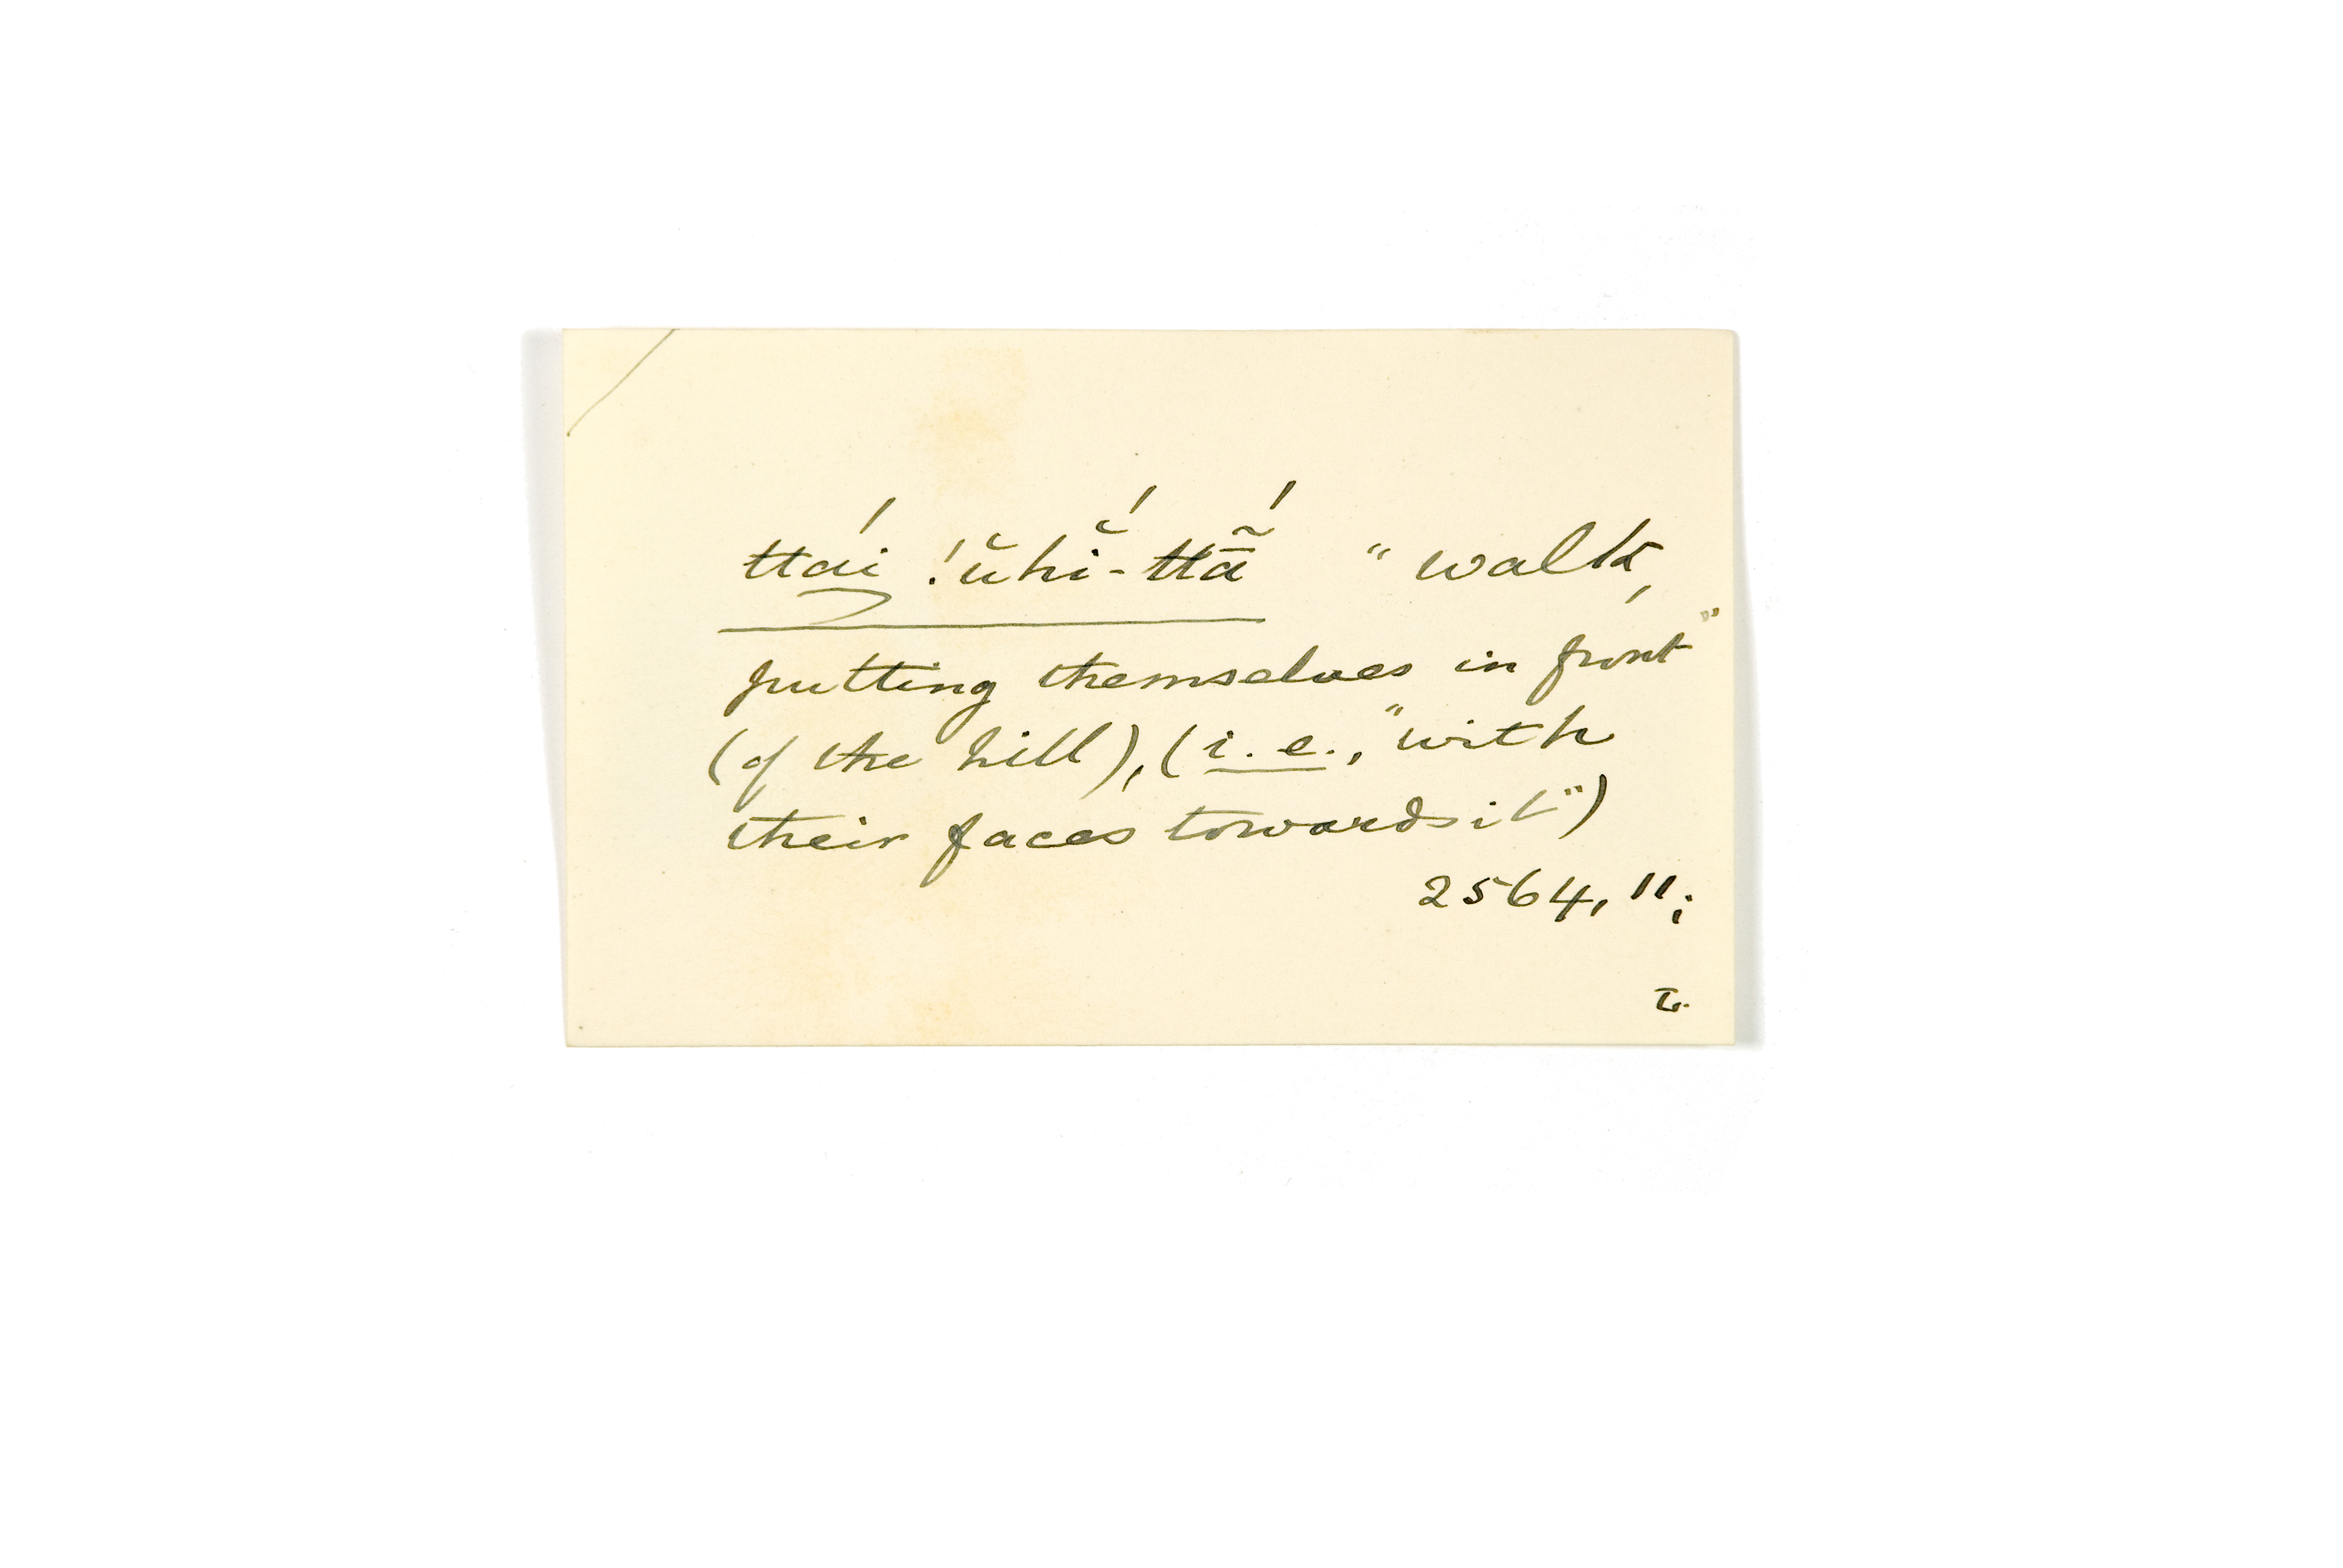 ttái !ŭhĭ́-ttã̄́ " walk,
putting themselves in front"
(of the hill), (i. e., "with
their faces towards it")
2564, 11;
L.